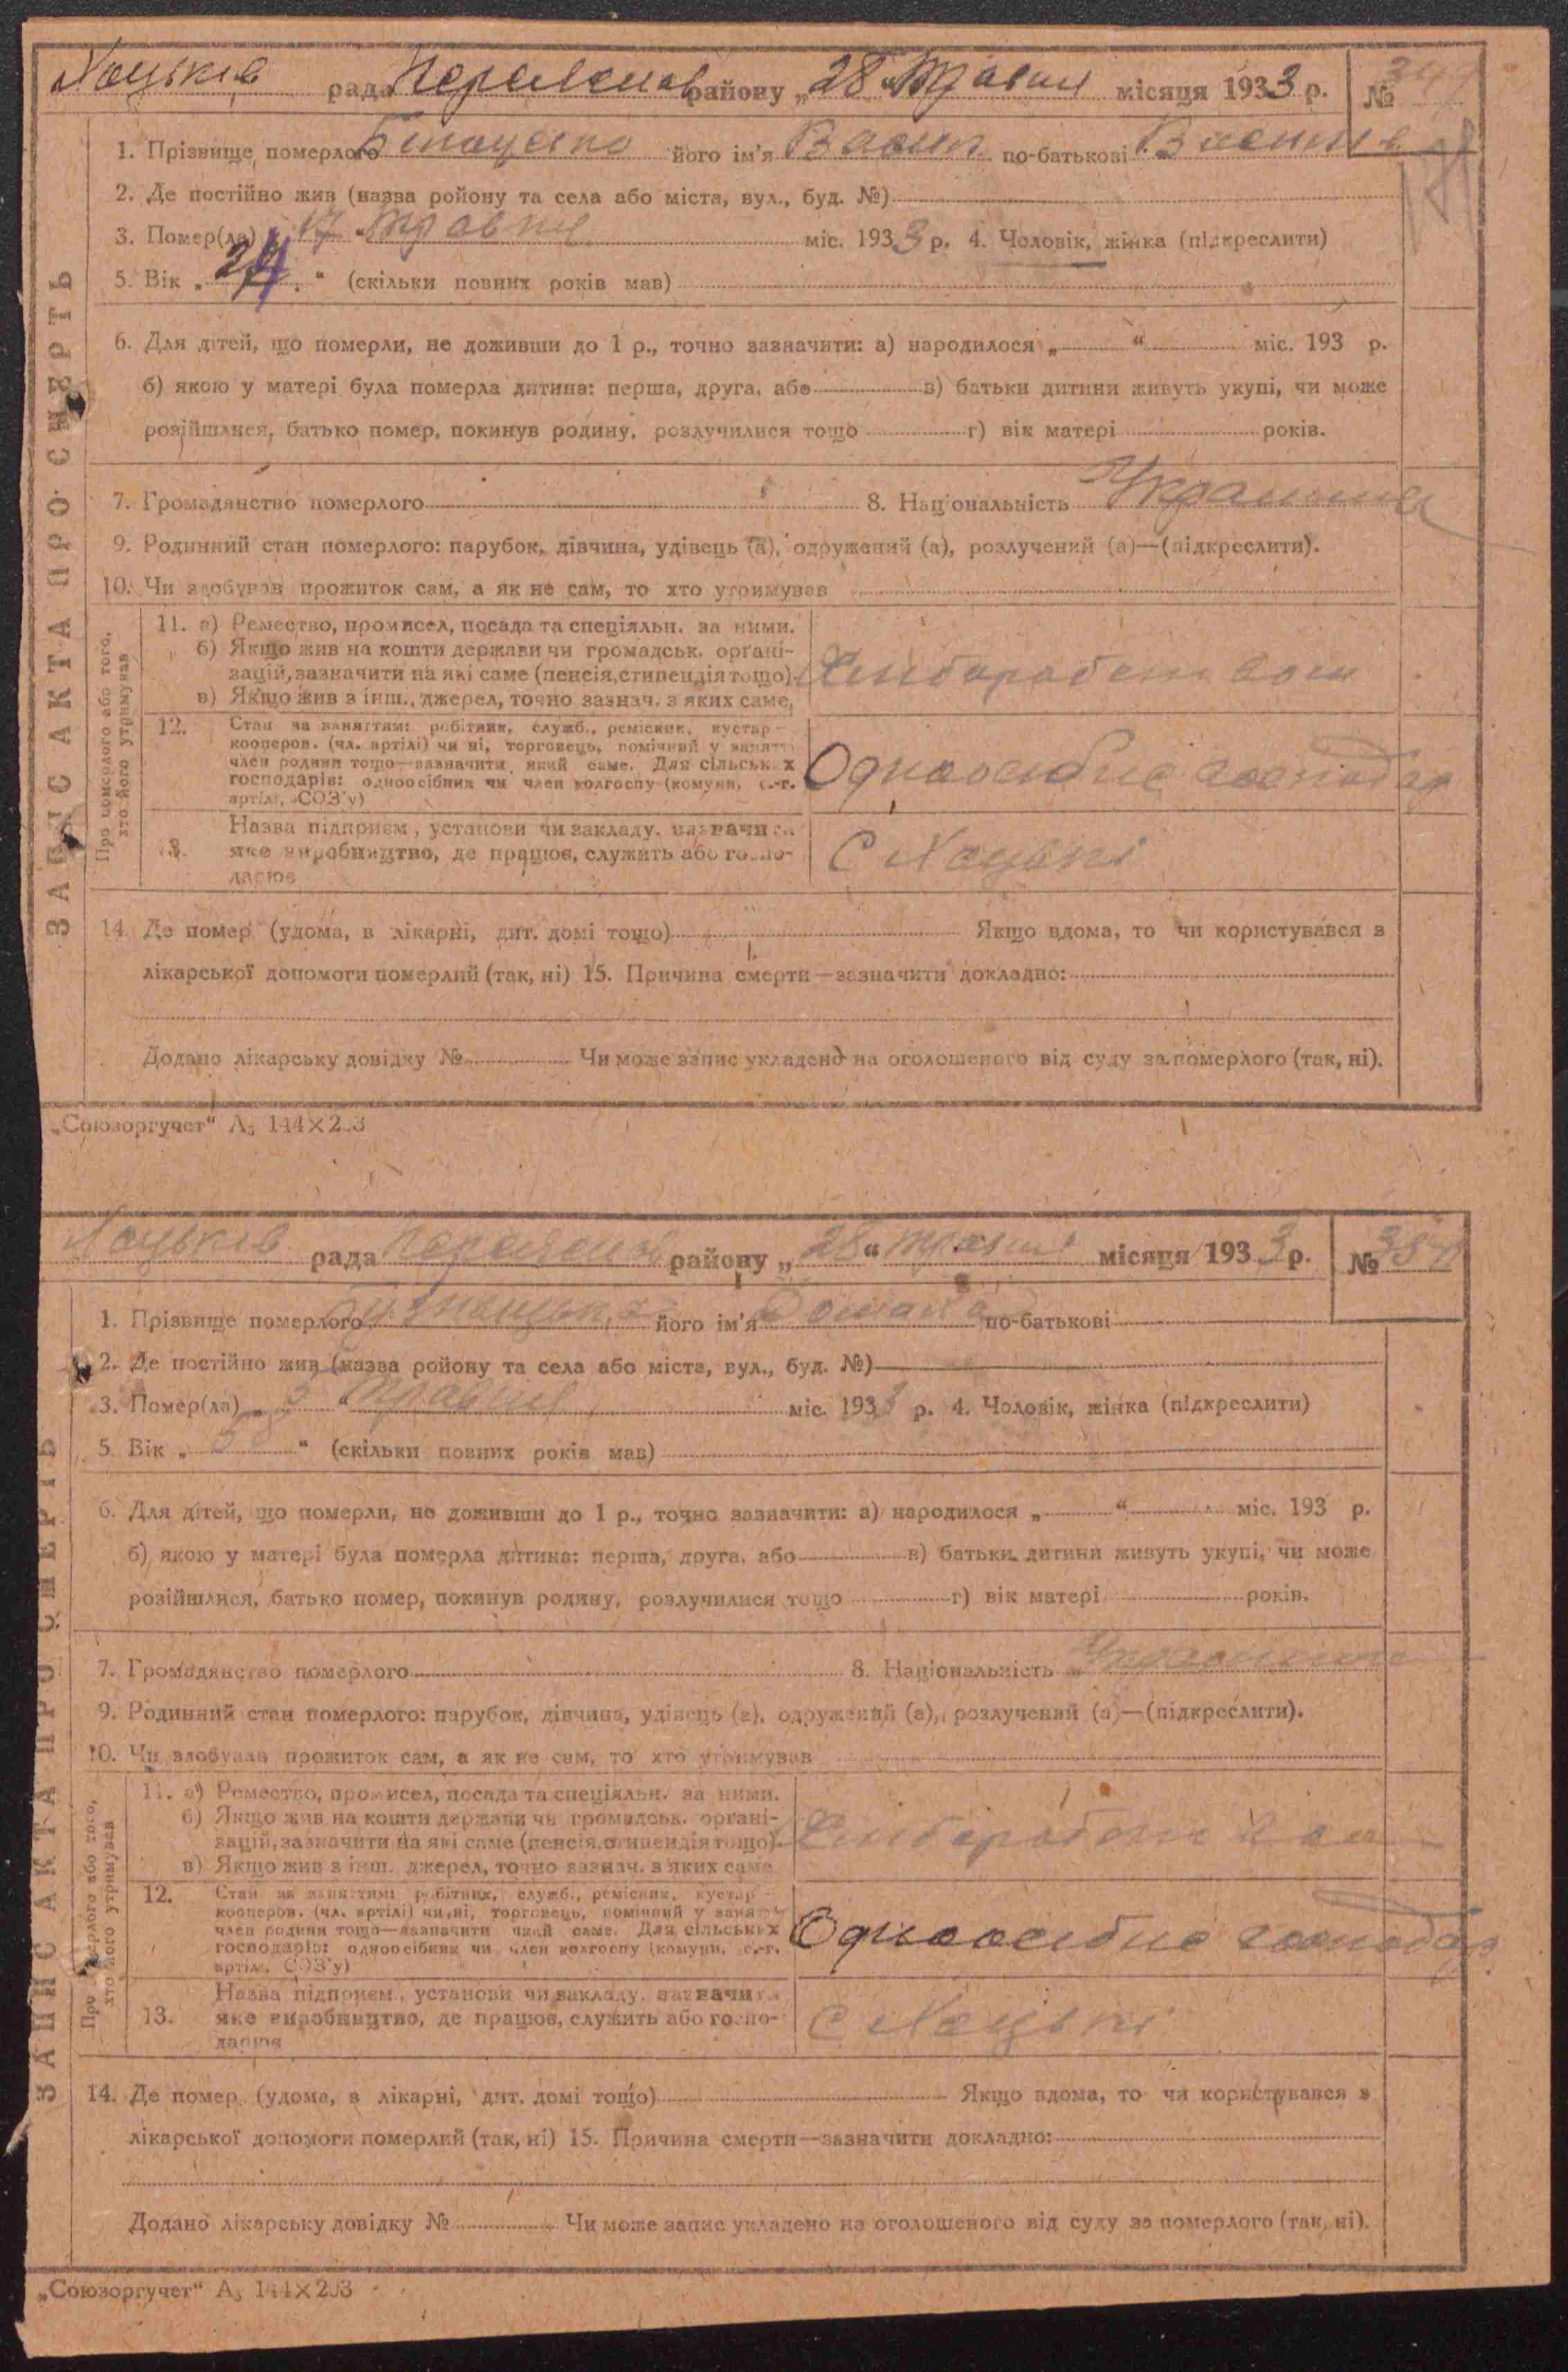 Хоцьків рада Переяслав району „28“ травня місяця 1933 р. №
1. Прізвище померлого його ім'я Васил по-батькові
2. Де постійно жив (назва ройону та села або міста, вул., буд. №)
3. Помер(ла) „17“ травня міс. 1933 р. 4. Чоловік, жінка (підкреслити)
5. Вік „24“ (скільки повних років мав)
6. Для дітей, що померли, не доживши до 1 р., точно зазначити: а) народилося „ “ міс. 193 р.
б) якою у матері була померла дитина: перша, друга, або в) батьки дитини живуть укупі, чи може
розійшлися, батько помер, покинув родину, розлучилися тощо г) вік матері років.
7. Громадянство померлого 8. Національність
9. Родинний стан померлого: парубок, дівчина, удівець (а), одружений (а), розлучений (а)—(підкреслити).
10. Чи здобував прожиток сам, а як не сам, то хто утримував
ЗАПИС АКТА ПРО СМЕРТЬ
Про померлого або того, хто його утримував
11. а) Ремество, промисел, посада та спеціяльн. за ними.
б) Якщо жив на кошти держави чи громадськ. органі-
зацій, зазначити на які саме (пенсія, стипендія тощо).
в) Якщо жив з інш. джерел, точно зазнач. з яких саме,
12. Стан за заняттям: робітник, служб., ремісник, кустар-
кооперов. (чл. артілі) чи ні, торговець, помічний у занятті
член родини тощо—зазначити який саме. Для сільських
господарів: одноосібник чи член колгоспу (комуни, с.-г.
артілі, СОЗ'у)
Одноосібне господар
Назва підприєм., установи чи закладу, зазначити
13. яке виробництво, де працює, служить або госпо-
дарює
С Хоцьки
14. Де помер (удома, в лікарні, дит. домі тощо) Якщо вдома, то чи користувався з
лікарської допомоги померлий (так, ні) 15. Причина смерти—зазначити докладно:
Додано лікарську довідку № Чи може запис укладено на оголошеного від суду за померлого (так, ні).
„Союзоргучет“ А₅ 144×203
Хоцьків рада Переяслав району „28“ травня місяця 1933 р. №
1. Прізвище померлого його ім'я по-батькові
2. Де постійно жив (назва ройону та села або міста, вул., буд. №)
3. Помер(ла) „5“ травня міс. 1933 р. 4. Чоловік, жінка (підкреслити)
5. Вік „ “ (скільки повних років мав)
6. Для дітей, що померли, не доживши до 1 р., точно зазначити: а) народилося „ “ міс. 193 р.
б) якою у матері була померла дитина: перша, друга, або в) батьки дитини живуть укупі, чи може
розійшлися, батько помер, покинув родину, розлучилися тощо г) вік матері років.
7. Громадянство померлого 8. Національність
9. Родинний стан померлого: парубок, дівчина, удівець (а), одружений (а), розлучений (а)—(підкреслити).
10. Чи здобував прожиток сам, а як не сам, то хто утримував
ЗАПИС АКТА ПРО СМЕРТЬ
Про померлого або того, хто його утримував
11. а) Ремество, промисел, посада та спеціяльн. за ними.
б) Якщо жив на кошти держави чи громадськ. органі-
зацій, зазначити на які саме (пенсія, стипендія тощо).
в) Якщо жив з інш. джерел, точно зазнач. з яких саме
12. Стан за заняттям: робітник, служб., ремісник, кустар-
кооперов. (чл. артілі) чи ні, торговець, помічний у занятті
член родини тощо—зазначити який саме. Для сільських
господарів: одноосібник чи член колгоспу (комуни, с.-г.
артілі, СОЗ'у)
Одноосібне господар
Назва підприєм., установи чи закладу, зазначити
13. яке виробництво, де працює, служить або госпо-
дарює
С Хоцьки
14. Де помер (удома, в лікарні, дит. домі тощо) Якщо вдома, то чи користувався з
лікарської допомоги померлий (так, ні) 15. Причина смерти—зазначити докладно:
Додано лікарську довідку № Чи може запис укладено на оголошеного від суду за померлого (так, ні).
„Союзоргучет“ А₅ 144×203